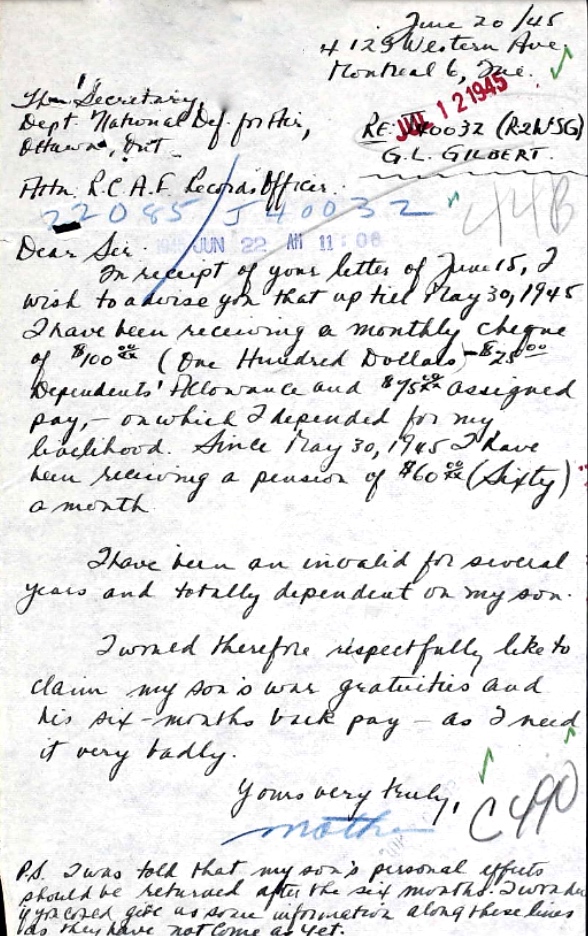 June 20/45
4123 Western Ave,
Montreal 6, Que.
The Secretary,
Dept. National Def. for Air,
Ottawa, Ont.
JUL 12 1945
RE: J40032 (R2WSG)
G.L. GILBERT.
Attn. R.C.A.F. Records Officer.
22085/J40032
44B
1945 JUN 22 AM 11:06
Dear Sir:
In receipt of your letter of June 15, I
wish to advise you that up till May 30, 1945
I have been receiving a monthly cheque
of $100 00/xx (One Hundred Dollars) - $25 00
Dependents' Allowance and $75 00/xx assigned
pay, - on which I depended for my
livelihood. Since May 30, 1945 I have
been receiving a pension of $60 00/xx (Sixty)
a month.
I have been an invalid for several
years and totally dependent on my son.
I would therefore respectfully like to
claim my son's war gratuities and
his six-months back pay - as I need
it very badly.
Yours very truly,
mother
C490
P.S. I was told that my son's personal effects
should be returned after the six months. I wonder
if you could give us some information along these lines
as they have not come as yet.